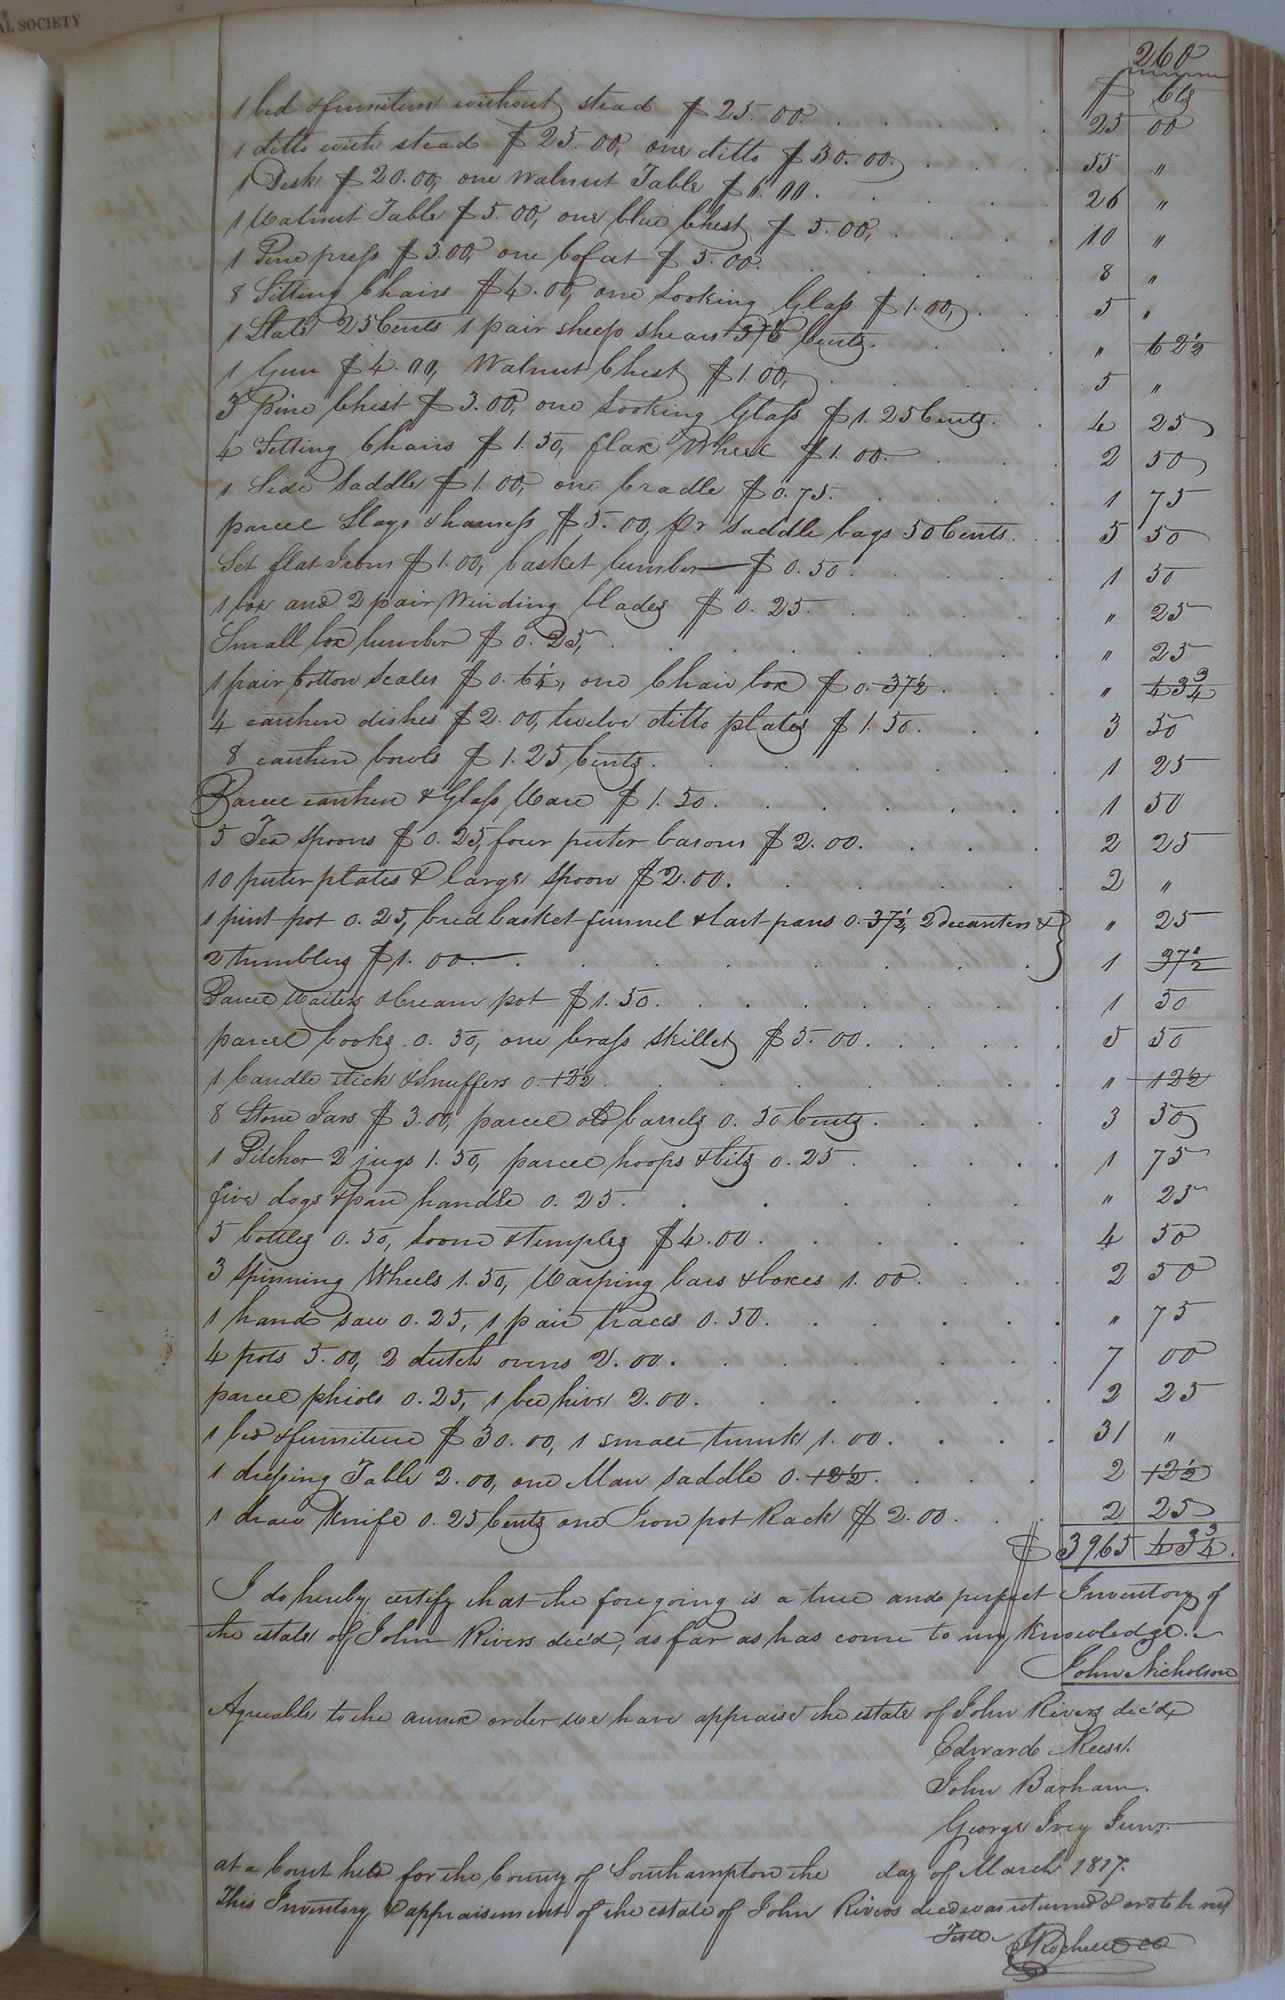 AL SOCIETY
260
$ Cts
1 bed & furniture without stead $25.00. 25 00
1 ditto with stead $25.00, one ditto $30.00. 55 "
1 Desk $20.00, one Walnut Table $6.00. 26 "
1 Walnut Table $5.00, one blue Chest $5.00, 10 "
1 Pine press $3.00, one bofat $5.00. 8 "
8 Sitting Chairs $4.00, one Looking Glass $1.00, 5 "
1 Slate 25 Cents 1 pair sheep shears 37½ Cents. " 62½
1 Gun $4.00, Walnut Chest $1.00, 5 "
3 Pine Chest $3.00, one Looking Glass $1.25 Cents. 4 25
4 Sitting Chairs $1.50, flax Wheel $1.00. 2 50
1 Side Saddle $1.00, one Cradle $0.75. 1 75
parcel Slays & harness $5.00, pr saddle bags 50 Cents. 5 50
Set flat Irons $1.00, basket lumber $0.50. 1 50
1 box and 2 pair Winding blades $0.25. " 25
Small box lumber $0.25, " 25
1 pair Cotton Scales $0.6¼, one Chair box $0.37½. " 43¾
4 earthen dishes $2.00, twelve ditto plates $1.50. 3 50
8 earthen bowls $1.25 Cents. 1 25
Parcel earthen & Glass Ware $1.50. 1 50
5 Tea Spoons $0.25, four puter basons $2.00. 2 25
10 puter plates & large spoon $2.00. 2 "
1 pint pot 0.25, bred basket funnel & tart pans 0.37½, 2 decanters & } " 25
2 tumblers $1.00. 1 37½
Parcel Waiters & Cream pot $1.50. 1 50
parcel books 0.50, one brass skillet $5.00. 5 50
1 Candle stick & Snuffers 0.12½ " 12½
8 Stone Jars $3.00, parcel old barrels 0.50 Cents. 3 50
1 Pitcher 2 jugs 1.50, parcel hoops & bits 0.25. 1 75
five dogs & pan handle 0.25. " 25
5 bottles 0.50, Loom & temples $4.00. 4 50
3 Spinning Wheels 1.50, Warping bars & boxes 1.00. 2 50
1 hand saw 0.25, 1 pair traces 0.50. " 75
4 pots 5.00, 2 dutch ovens 2.00. 7 00
parcel phiols 0.25, 1 bee hive 2.00. 2 25
1 bed & furniture $30.00, 1 small trunk 1.00. 31 "
1 dressing Table 2.00, one Man saddle 0.12½. 2 12½
1 draw Knife 0.25 Cents one Iron pot Rack $2.00. 2 25
$ 3965 43¾.
I do hereby certify that the foregoing is a true and perfect Inventory of
the estate of John Rivers dec'd, as far as has come to my Knowledge.
John Nicholson
Agreeable to the annex order we have appraise the estate of John Rivers dec'd
Edward Reese.
John Barham.
George Ivey Junr.
at a Court held for the County of Southampton the day of March 1817.
This Inventory & appraisement of the estate of John Rivers decd was returned & ord to be recd
Teste. J Rochelle CC